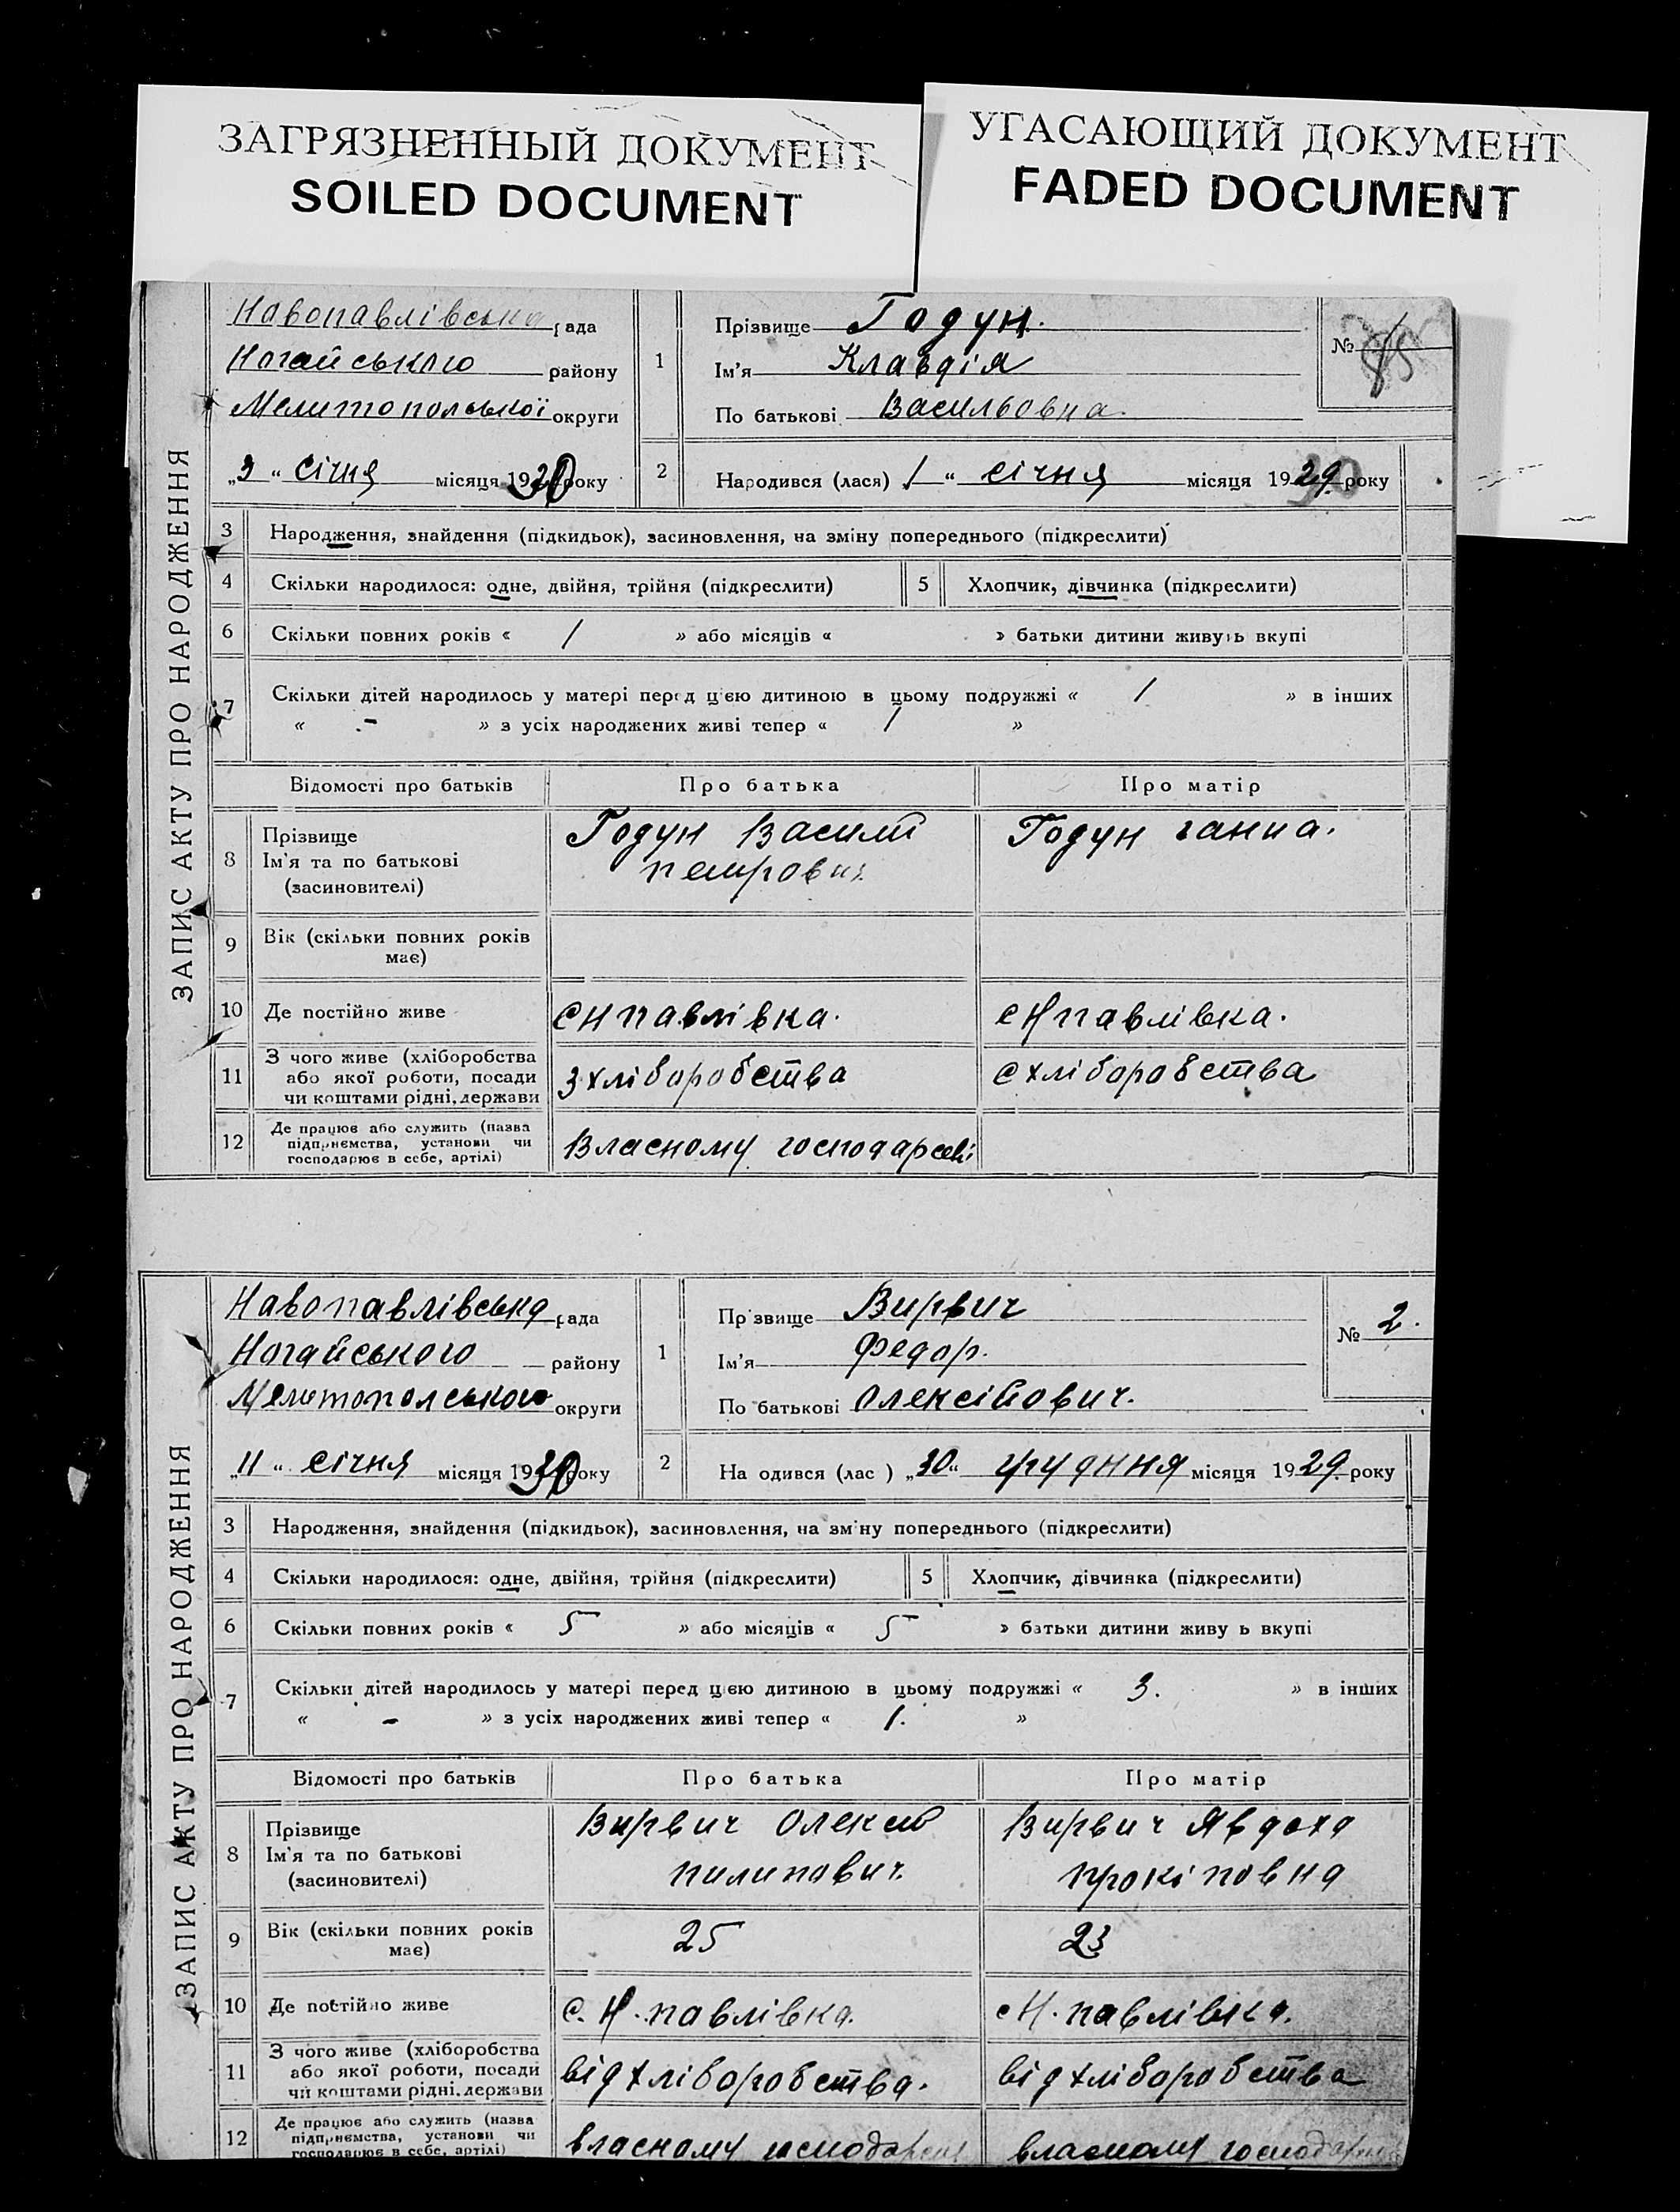 ЗАГРЯЗНЕННЫЙ ДОКУМЕНТ
SOILED DOCUMENT
УГАСАЮЩИЙ ДОКУМЕНТ
FADED DOCUMENT
ЗАПИС АКТУ ПРО НАРОДЖЕННЯ
Навопавлівська рада
Ногайського району
Мелитопольскої округи
„3“ січня місяця 1930 року
1 Прізвище Годун.
Ім'я Клавдія
По батькові Васильовна.
№
2 Народився (лася) 1 “ січня місяця 19 року
3 Народження, знайдення (підкидьок), засиновлення, на зміну попереднього (підкреслити)
4 Скільки народилося: одне, двійня, трійня (підкреслити) 5 Хлопчик, дівчинка (підкреслити)
6 Скільки повних років « 1 » або місяців « » батьки дитини живуть вкупі
7 Скільки дітей народилось у матері перед цією дитиною в цьому подружжі « 1 » в інших
« - » з усіх народжених живі тепер « 1 »
Відомості про батьків Про батька Про матір
8 Прізвище
Ім'я та по батькові
(засиновителі)
Годун Василй
петрович
Годун ганна.
9 Вік (скільки повних років
має)
10 Де постійно живе с Н павлівка. с Н павлівка.
11 З чого живе (хліборобства
або якої роботи, посади
чи коштами рідні, держави
з хліборобства с хліборобства
12 Де працює або служить (назва
підприємства, установи чи
господарює в себе, артілі)
Власному господарсві
ЗАПИС АКТУ ПРО НАРОДЖЕННЯ
Навопавлівська рада
Ногайського району
Мелитополського округи
„11“ січня місяця 1930 року
1 Прізвище Вирвич
Ім'я Федор.
По батькові Олексійович.
№ 2.
2 На одився (лас ) „30“ грудння місяця 1929 року
3 Народження, знайдення (підкидьок), засиновлення, на зміну попереднього (підкреслити)
4 Скільки народилося: одне, двійня, трійня (підкреслити) 5 Хлопчик, дівчинка (підкреслити)
6 Скільки повних років « 5 » або місяців « 5 » батьки дитини живу ь вкупі
7 Скільки дітей народилось у матері перед цією дитиною в цьому подружжі « 3. » в інших
« - » з усіх народжених живі тепер « 1. »
Відомості про батьків Про батька Про матір
8 Прізвище
Ім'я та по батькові
(засиновителі)
Вирвич Олексій
пилипович.
Вирвич Явдоха
прокіповна
9 Вік (скільки повних років
має)
25 23
10 Де постійно живе с. Н. павлівка. с Н. павлівка.
11 З чого живе (хліборобства
або якої роботи, посади
чи коштами рідні, держави
від хліборобства. від хліборобства
12 Де працює або служить (назва
підприємства, установи чи
господарює в себе, артілі)
власному власному